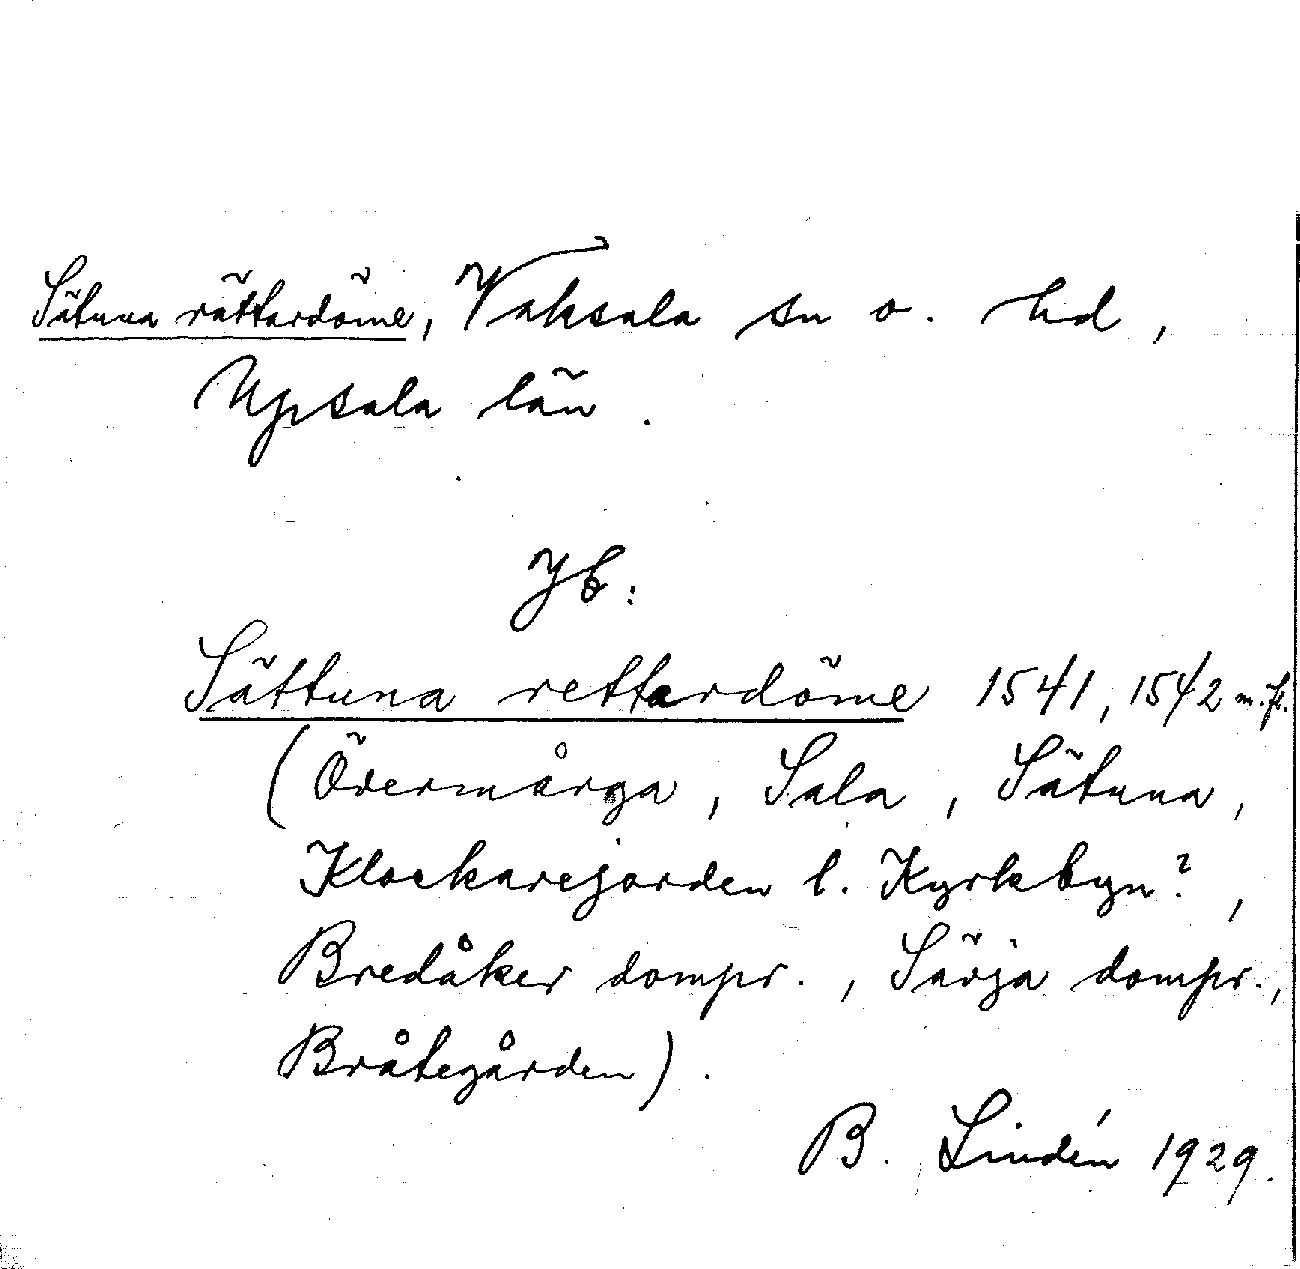 Sätuna rättardöme, Vaksala sn o. hd,
Upsala län.
Jb:
Sättuna rettardöme 1541, 1542 m. fl.
(Övermårga, Sala, Sätuna,
Klockarejorden l. Kyrkbyn?,
Bredåker dompr., Särja dompr.,
Bråtegården).
B. Lindén 1929.